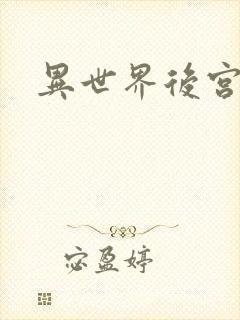 異世界後宮
宓盈婷